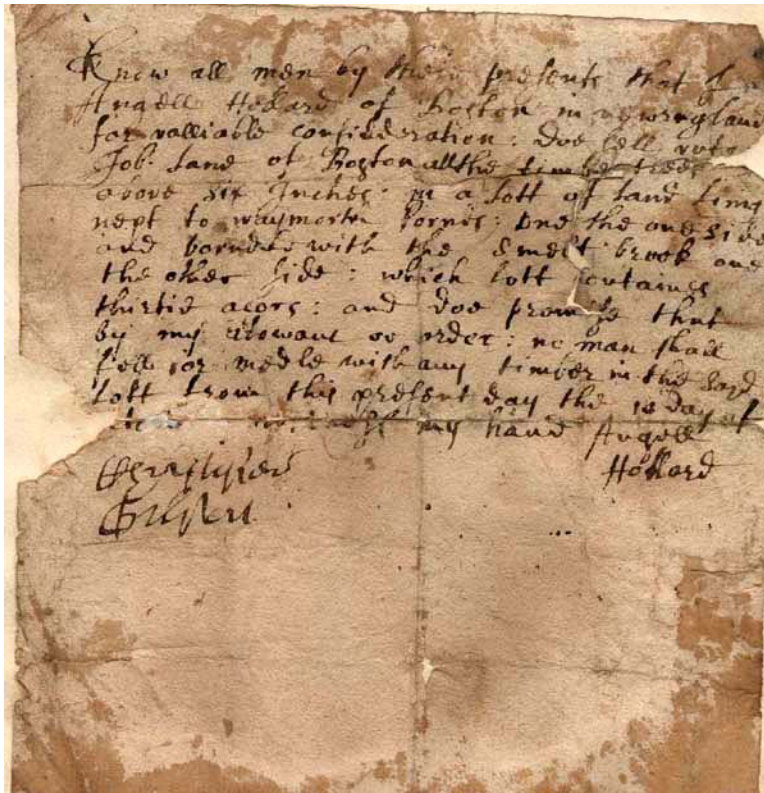 Know all men by these presents that I
Angell Hollard of Boston in newengland
for valliable consideration: doe sell unto
Job: Lane of Boston all the timber trees
above six Inches: in a lott of land
next to waymorth: one the one side
and with the Smelt brook one
the other side: which lott containes
thirtie acors: and doe promise that
by my or order: no man shall
fell or medle with any timber in the sayd
lott from this present day the 10 day of
witness my hand Angell
Hollard